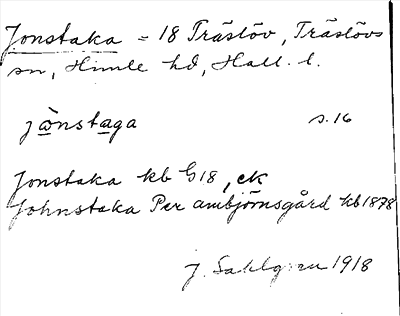 Jonstaka = 18 Träslöv, Träslövs
sn, Himle hd, Hall. l.
jònstaga s. 16
Jonstaka kb G18, ek
Johnstaka Per ambjörnsgård kb 1878
J. Sahlgren 1918